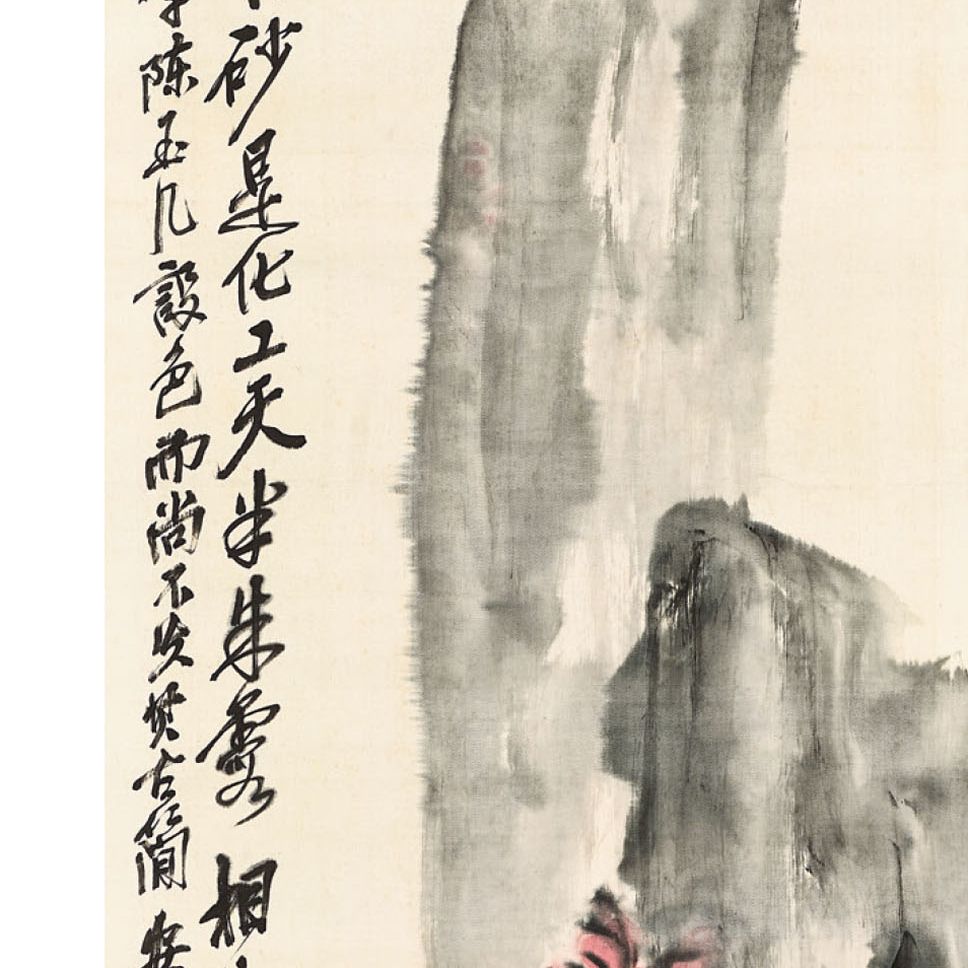 砂是化工天半朱霞相
陳玉几設色而尚不失其古簡安